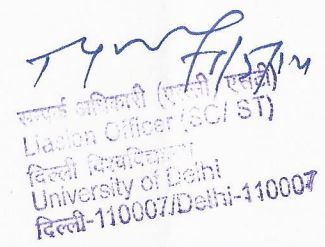 सम्पर्क अधिकारी (एससी / एसटी)
Liasion Officer (SC/ ST)
दिल्ली विश्वविद्यालय
University of Delhi
दिल्ली-110007/Delhi-110007